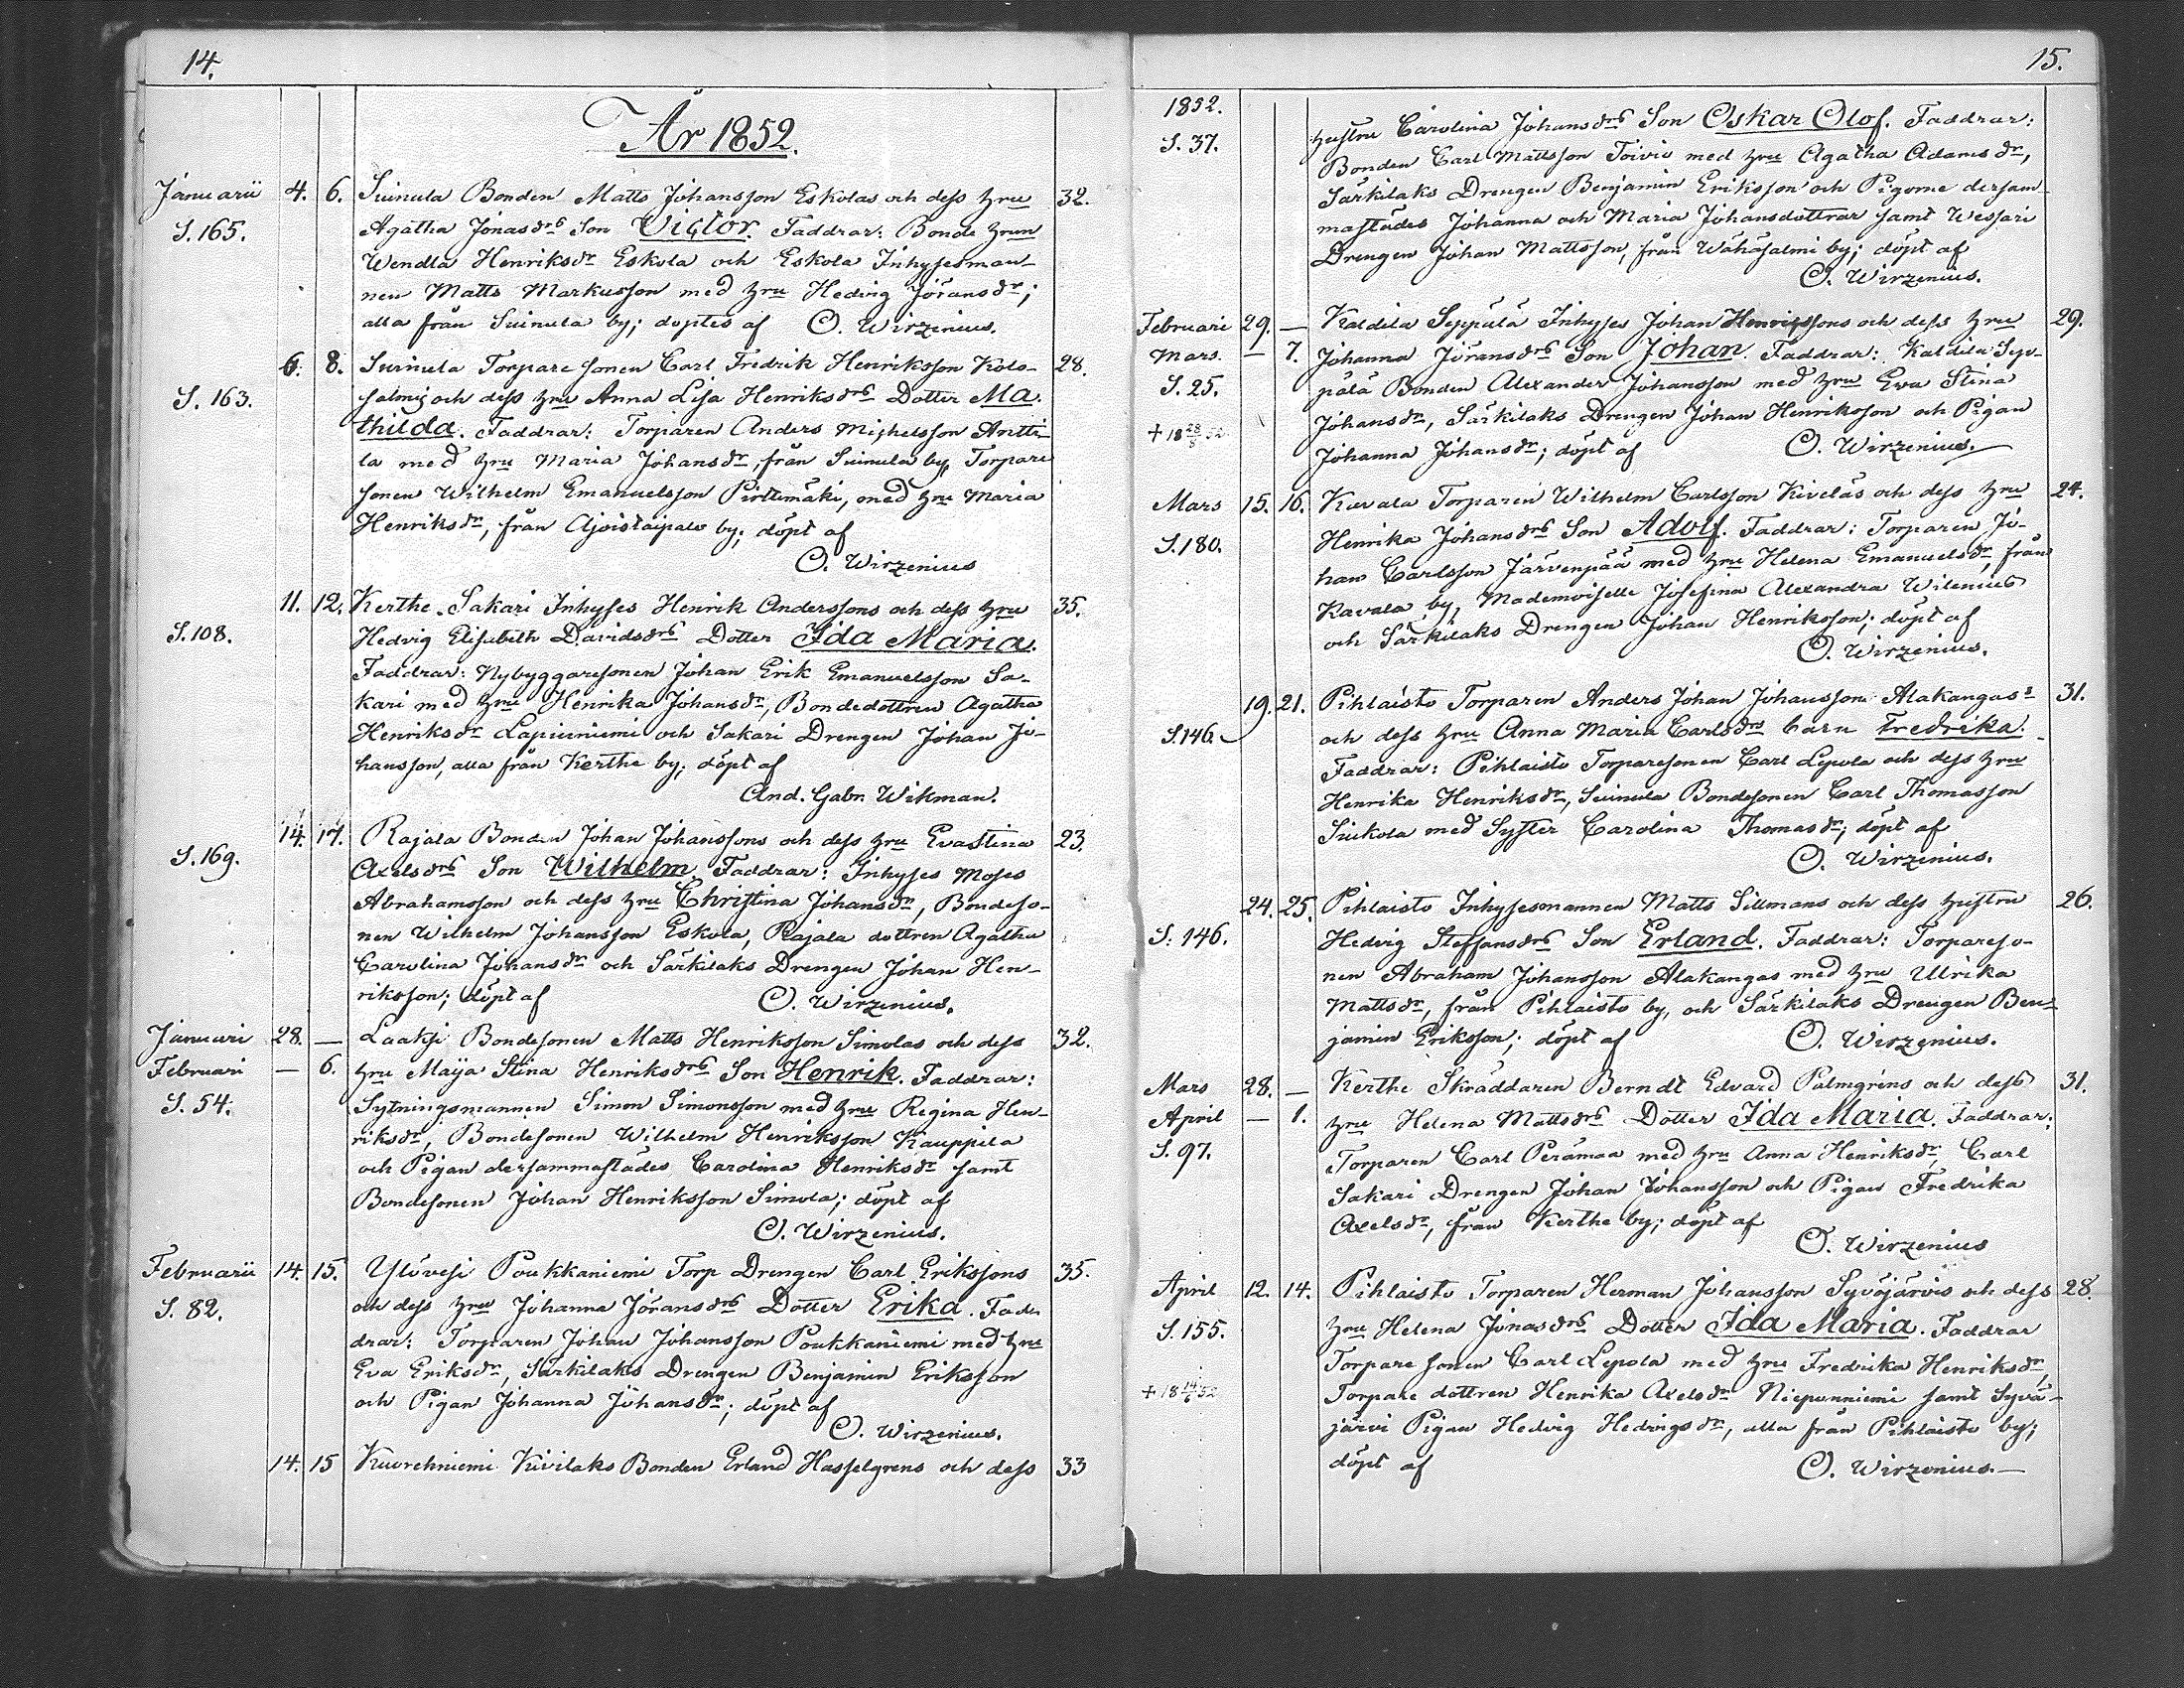 14.
År 1852.
Januarii 4. 6. Suinula Bonden Matts Johansson Eskolas och dess hru 32.
S. 165. Agatha Jonasdrs Son Victor. Faddrar: Bonde hrun
Wendla Henriksdr Eskola och Eskola Inhysesman-
nen Matts Markusson med hru Hedvig Jöransdr;
alla från Suinula by; döptes af O. Wirzenius.
6. 8. Suinula Torparesonen Carl Fredrik Henriksson Kolo- 28.
S. 163. salmis och dess hru Anna Lisa Henriksdrs Dotter Ma-
thilda. Faddrar: Torparen Anders Michelsson Antti-
la med hru Maria Johansdr, från Suinula by, Torpare
sonen Wilhelm Emanuelsson Pirttimäki, med hru Maria
Henriksdr, från Ajoistaipale by; döpt af
O. Wirzenius
11. 12. Kerthe Sakari Inhyses Henrik Anderssons och dess hru 35.
S. 108. Hedvig Elisabeth Davidsdrs Dotter Ida Maria.
Faddrar: Nybyggaresonen Johan Erik Emanuelsson Sa-
kari med hru Henrika Johansdr, Bondedottren Agatha
Henriksdr Lapinniemi och Sakari Drengen Johan Jo-
hansson, alla från Kerthe by; döpt af
And. Gabr. Wikman.
14. 17. Rajala Bonden Johan Johanssons och dess hru Evastina 23.
S. 169. Axelsdrs Son Wilhelm Faddrar: Inhyses Moses
Abrahamsson och dess hru Christina Johansdr, Bondeso-
nen Wilhelm Johansson Eskola, Rajala dottren Agatha
Carolina Johansdr och Särkilaks Drengen Johan Hen-
riksson; döpt af O. Wirzenius.
Januari 28. — Laaksi Bondesonen Matts Henriksson Simolas och dess 32.
Februari — 6. hru Maija Stina Henriksdrs Son Henrik. Faddrar:
S. 54. Sytningsmannen Simon Simonsson med hru Regina Hen-
riksdr, Bondesonen Wilhelm Henriksson Kauppila
och Pigan dersammastädes Carolina Henriksdr samt
Bondesonen Johan Henriksson Simola; döpt af
O. Wirzenius.
Februarii 14. 15. Ylövesi Poukkaniemi Torp Drengen Carl Erikssons 35.
S. 82. och dess hru Johanna Jöransdrs Dotter Erika. Fad-
drar: Torparen Johan Johansson Poukkaniemi med hru
Eva Eriksdr, Särkilaks Drengen Benjamin Eriksson
och Pigan Johanna Johansdr; döpt af
O. Wirzenius.
14. 15 Kuorehniemi Kivilaks Bonden Erland Hasselgrens och dess 33
15.
1852. hustru Carolina Johansdrs Son Oskar Olof. Faddrar:
S. 37. Bonden Carl Mattsson Toivio med hru Agatha Adamsdr,
Särkilaks Drengen Benjamin Eriksson och Pigorne dersam-
mastädes Johanna och Maria Johansdottrar samt Wessari
Drengen Johan Mattsson, från Wähäsalmi by; döpt af
O. Wirzenius.
Februari 29. — Kaldila Seppälä Inhyses Johan Henrikssons och dess hru 29.
Mars. — 7. Johanna Jöransdrs Son Johan. Faddrar: Kaldila Syp-
S. 25. pälä Bonden Alexander Johansson med hru Eva Stina
Johansdr, Särkilaks Drengen Johan Henriksson och Pigan
+ 18 28/8 52. Johanna Johansdr; döpt af O. Wirzenius.
Mars 15. 16. Kavala Torparen Wilhelm Carlsson Kiveläs och dess hru 24.
S. 180. Henrika Johansdrs Son Adolf. Faddrar: Torparen Jo-
han Carlsson Järvenpää med hru Helena Emanuelsdr, från
Kavala by, Mademoiselle Josefina Alexandra Wilenius
och Särkilaks Drengen Johan Henriksson; döpt af
O. Wirzenius.
19. 21. Pihlaisto Torparen Anders Johan Johansson Alakangas: 31.
S. 146. och dess hru Anna Maria Carlsdrs barn Fredrika.
Faddrar: Pihlaisto Torparesonen Carl Lepola och dess hru
Henrika Henriksdr, Suinula Bondesonen Carl Thomasson
Suikola med Syster Carolina Thomasdr; döpt af
O. Wirzenius.
24. 25. Pihlaisto Inhysesmannen Matts Sillmans och dess hustru 26.
S. 146. Hedvig Steffansdrs Son Erland. Faddrar: Torpareso-
nen Abraham Johansson Alakangas med hru Ulrika
Mattsdr, från Pihlaisto by, och Särkilaks Drengen Ben-
jamin Eriksson; döpt af O. Wirzenius.
Mars 28. — Kerthe Skräddaren Berndt Edvard Palmgréns och dess 31.
April — 1. hru Helena Mattsdrs Dotter Ida Maria. Faddrar:
S. 97. Torparen Carl Perämaa med hru Anna Henriksdr, Carl
Sakari Drengen Johan Johansson och Pigan Fredrika
Axelsdr, från Kerthe by; döpt af
O. Wirzenius
April 12. 14. Pihlaisto Torparen Herman Johansson Syväjärvis och dess 28.
S. 155. hru Helena Jonasdrs Dotter Ida Maria. Faddrar
Torparesonen Carl Lepola med hru Fredrika Henriksdr,
Torpare dottren Henrika Axelsdr Nieponniemi samt Syvä-
järvi Pigan Hedvig Hedvigsdr, alla från Pihlaisto by;
döpt af O. Wirzenius.